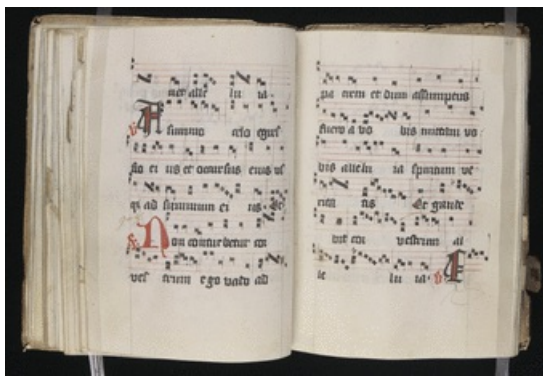 alle lu ia
A summo celo egres
sio ei us et occursus eius us
qz ad summum ei ius
Non conturbetur cor
ves trum ego vado ad
pa trem et dum assumptus
fuero a vo bis mittam vo
bis allelu ia spiritum ve
rita tis Et gaude
bit cor vestrum al
le lu ia